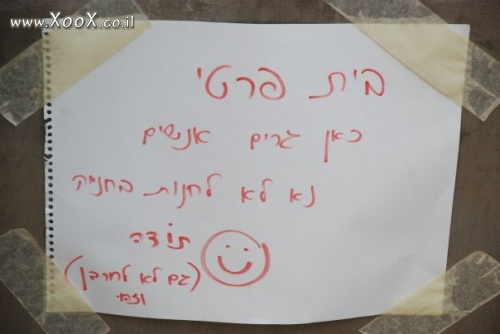 www.XooX.co.il
בית פרטי
כאן גרים אנשים
נא לא לחנות בחנייה
תודה
(גם לא לחרבן)